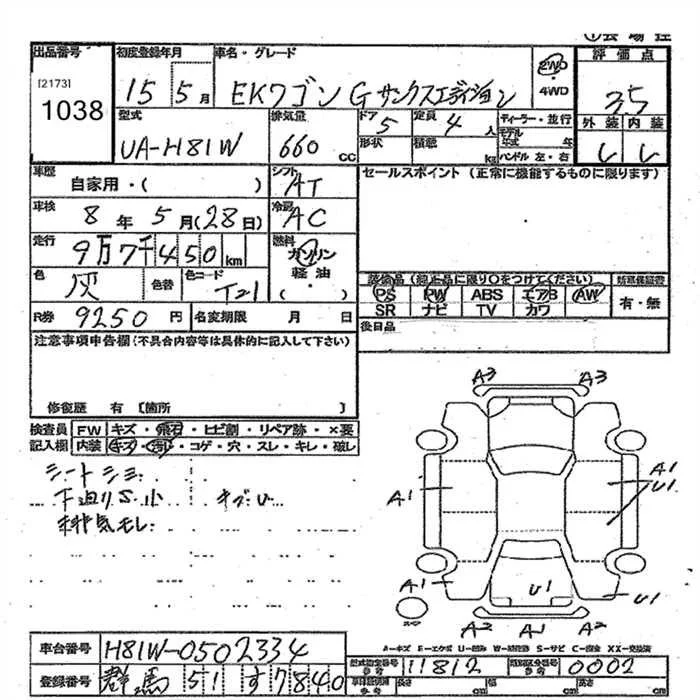 出品番号 初度登録年月 車名・グレード 評価点
[2173]
1038 15 5月 EKワゴン G サンクスエディション 2WD 4WD 35
外装 内装
型式 排気量 ドア 定員 ディーラー・並行
UA-H81W 660cc 5 4人 モデル年式 年
形状 積載 kg ハンドル 左・右
車歴 自家用・( ) シフト AT セールスポイント (正常に機能するものに限ります)
車検 8年 5月(28日) 冷房 AC
走行 9万7千450km 燃料 ガソリン
軽油
( ・ )
色 灰 色替 色コード T21
装備品 (純正品に限り○をつけてください) 新車保証書
PS PW ABS エアB AW 有・無
SR ナビ TV カワ
R券 9250円 名変期限 月 日
後日品
注意事項申告欄 (不具合内容等は具体的に記入して下さい)
修復歴 有 〔箇所 〕
検査員 FW キズ・飛石・ヒビ割・リペア跡・×要
記入欄 内装 キズ・汚れ・コゲ・穴・スレ・キレ・破レ
シートシミ
下廻りS小 キズU
排気モレ
A3 A3
A1 A1
U1
A1 U1 U1
A2 A1 A2
A-キズ E-エクボ U-凹み W-補修跡 S-サビ C-腐食 XX-交換済
車台番号 H81W-0502334
登録番号 群馬 51 す7840
型式指定番号 参考 11812 類別区分番号 参考 0002
車両諸元 参考 長さ cm 幅 cm 高さ cm